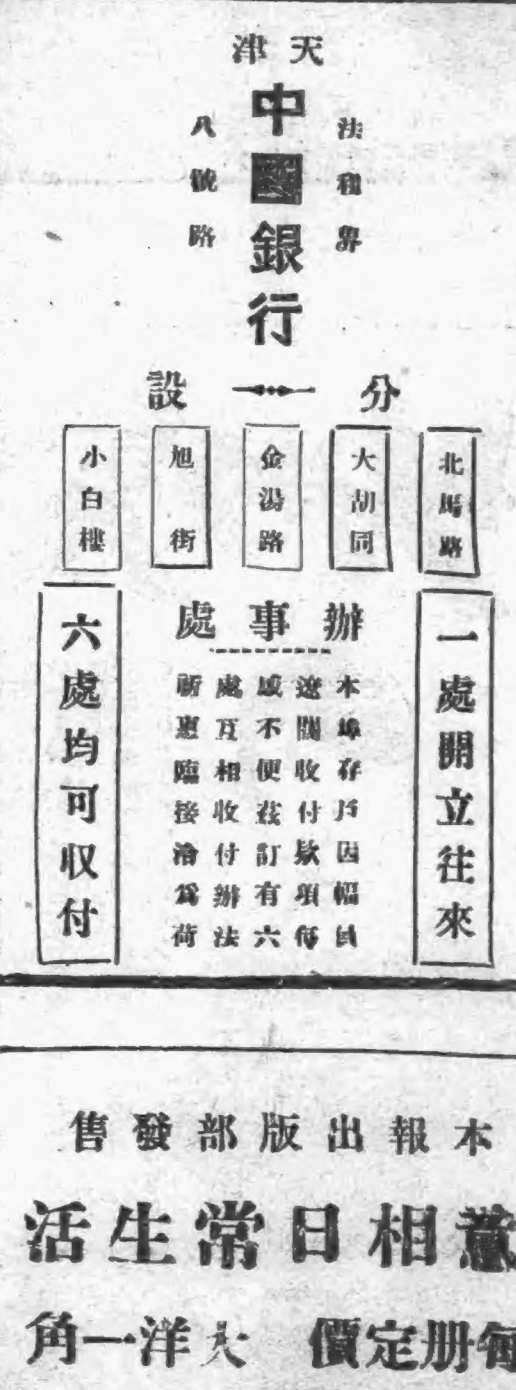 天津
法租界
中國銀行
八號路
分設
北馬路
大胡同
金湯路
旭街
小白樓
辦事處
一處開立往來
本埠存戶因幅員
遼闊收付款項每
感不便茲訂有六
處互相收付辦法
祈惠臨接洽為荷
六處均可収付
本報出版部發售
薏相日常生活
每册定價 大洋一角